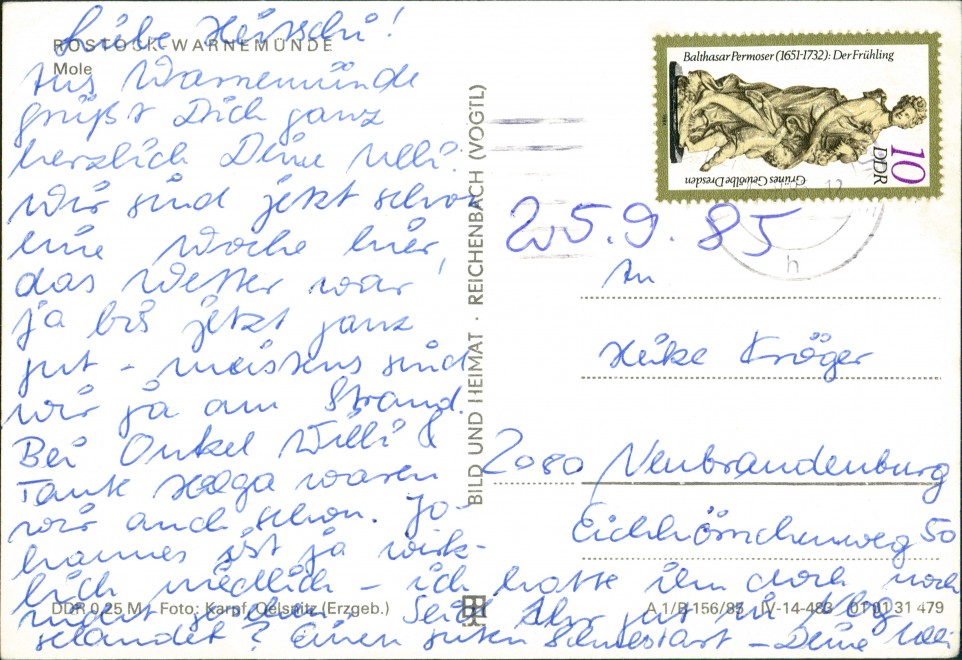 ROSTOCK-WARNEMÜNDE
Mole
Liebe
Aus Warnemünde
grüßt Dich ganz
herzlich Deine Ulli.
Wir sind jetzt schon
eine Woche hier,
das Wetter war
ja bis jetzt ganz
gut - meistens sind
wir ja am Strand.
Bei Onkel Willi &
Tante Helga waren
wir auch schon. Jo-
hannes ist ja wirk-
lich niedlich - ich hatte ihn doch noch
nicht gesehen. Seid Ihr gut in Nbg
gelandet? Einen guten Schulstart - Deine Ulli
DDR 0,25 M - Foto: Karpf, Oelsnitz (Erzgeb.)
BILD UND HEIMAT · REICHENBACH (VOGTL)
A 1/B 156/85 IV-14-483 01 01 31 479
Balthasar Permoser (1651-1732): Der Frühling
Grünes Gewölbe Dresden
10
DDR
h
25.9.85
An
Heike Kröger
2080 Neubrandenburg
Eichhörnchenweg 50